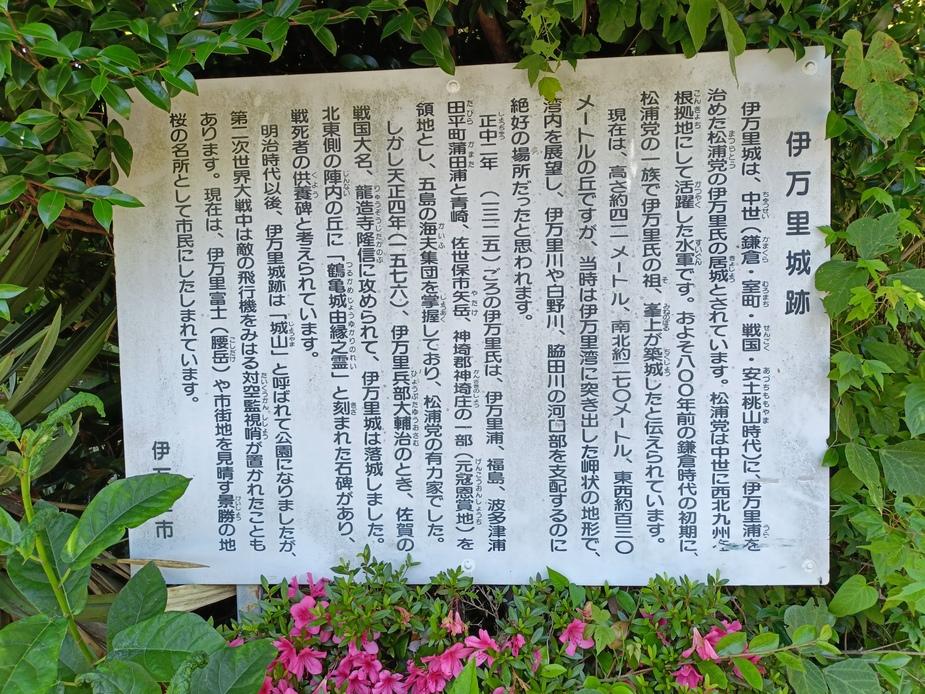 伊万里城跡
伊万里城は、中世（鎌倉・室町・戦国・安土桃山時代）に、伊万里浦を
治めた松浦党の伊万里氏の居城とされています。松浦党は中世に西北九州を
根拠地にして活躍した水軍です。およそ八〇〇年前の鎌倉時代の初期に、
松浦党の一族で伊万里氏の祖、峯上が築城したと伝えられています。
現在は、高さ約四二メートル、南北約二七〇メートル、東西約百三〇
メートルの丘ですが、当時は伊万里湾に突き出した岬状の地形で、
湾内を展望し、伊万里川や白野川、脇田川の河口部を支配するのに
絶好の場所だったと思われます。
正中二年（一三二五）ごろの伊万里氏は、伊万里浦、福島、波多津浦
田平町蒲田浦と青崎、佐世保市矢岳、神埼郡神埼庄の一部（元冦恩賞地）を
領地とし、五島の海夫集団を掌握しており、松浦党の有力家でした。
しかし天正四年（一五七六）、伊万里兵部大輔治のとき、佐賀の
戦国大名、龍造寺隆信に攻められて、伊万里城は落城しました。
北東側の陣内の丘に「鶴亀城由縁之霊」と刻まれた石碑があり、
戦死者の供養碑と考えられています。
明治時代以後、伊万里城跡は「城山」と呼ばれて公園になりましたが、
第二次世界大戦中は敵の飛行機をみはる対空監視哨が置かれたことも
あります。現在は、伊万里富士（腰岳）や市街地を見晴す景勝の地
桜の名所として市民にしたしまれています。
伊万里市